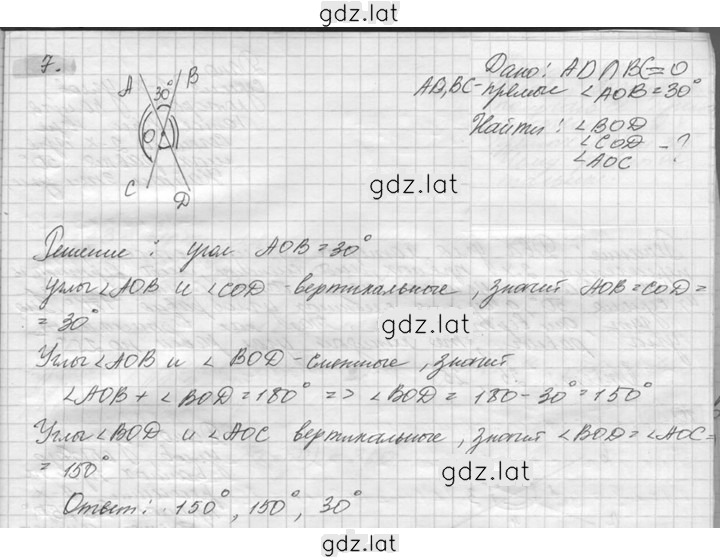 gdz.lat
7.
A B
30°
O
C D
Дано: AD∩BC=O
AD,BC-прямые ∠AOB=30°
Найти: ∠BOD
∠COD - ?
∠AOC
gdz.lat
Решение: угол AOB=30°
Углы ∠AOB и ∠COD - вертикальные, значит AOB=COD=
= 30°
gdz.lat
Углы ∠AOB и ∠BOD-смежные, значит
∠AOB + ∠BOD=180° => ∠BOD = 180-30°=150°
Углы ∠BOD и ∠AOC вертикальные, значит ∠BOD=∠AOC=
= 150°
gdz.lat
Ответ: 150°, 150°, 30°
gdz.lat